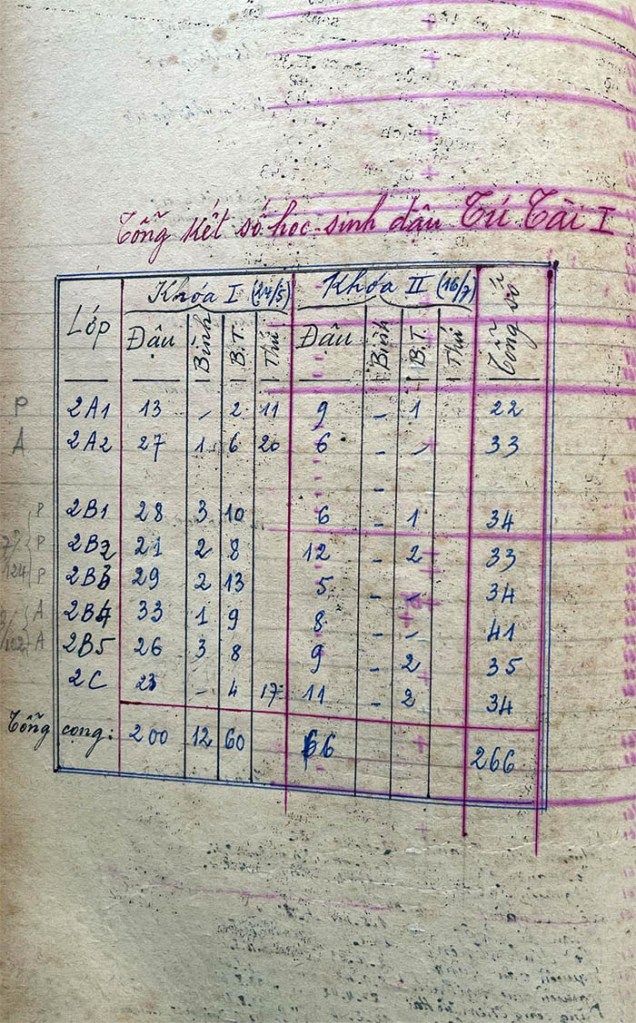 Tổng kết số học-sinh đậu Tú Tài I
Lớp Khóa I (24/5) Khóa II (16/7) Tổng số
Đậu Bình B.T. Thứ Đậu Bình B.T. Thứ
P 2A1 13 - 2 11 9 - 1 22
A 2A2 27 1 6 20 6 - - 33
-
P 2B1 28 3 10 6 - 1 34
P 2B2 21 2 8 12 - 2 33
124 P 2B3 29 2 13 5 - 1 34
A 2B4 33 1 9 8 - - 41
/102 A 2B5 26 3 8 9 - 2 35
2C 23 - 4 17 11 - 2 34
Tổng cộng: 200 12 60 66 266